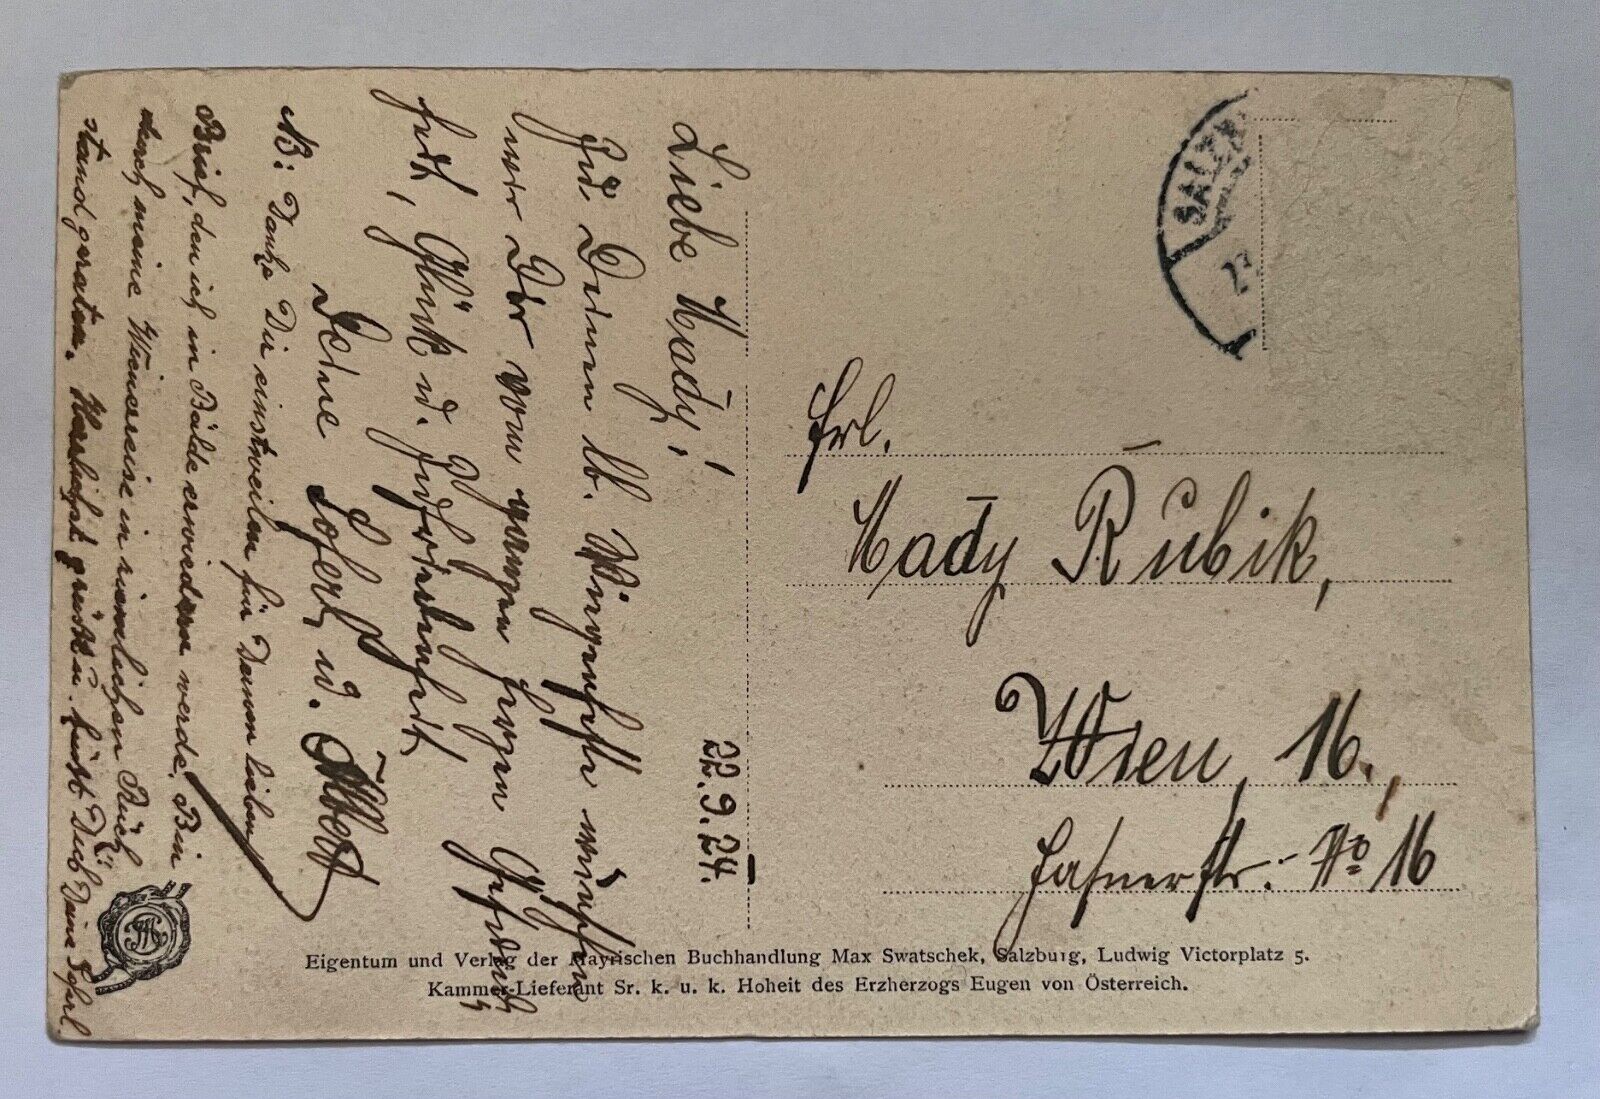 22.9.24.
Liebe Mady!
Zu Deinem lb. Wiegenfeste wünschen
wir Dir vom ganzen Herzen Gesund-
heit, Glück u. Zufriedenheit
Deine Soferl u. Albert
NB: Danke Dir einstweilen für Deinen lieben
Brief, den ich in Bälde erwiedern werde. Bin
durch meine Wienerreise in ziemlichen Rück-
stand geraten. Herzlichst grüßt u. küßt Dich Deine Soferl
SALZB
Frl.
Mady Rubik,
Wien, 16,
Hasnerstr: No 16
Eigentum und Verlag der Mayrischen Buchhandlung Max Swatschek, Salzburg, Ludwig Victorplatz 5.
Kammer-Lieferant Sr. k. u. k. Hoheit des Erzherzogs Eugen von Österreich.